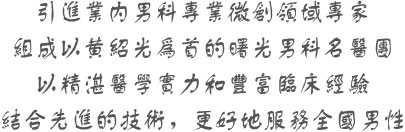 引進業內男科專業微創領域專家
組成以黄紹光爲首的曙光男科名醫團
以精湛醫學實力和豐富臨床經驗
結合先進的技術，更好地服務全國男性